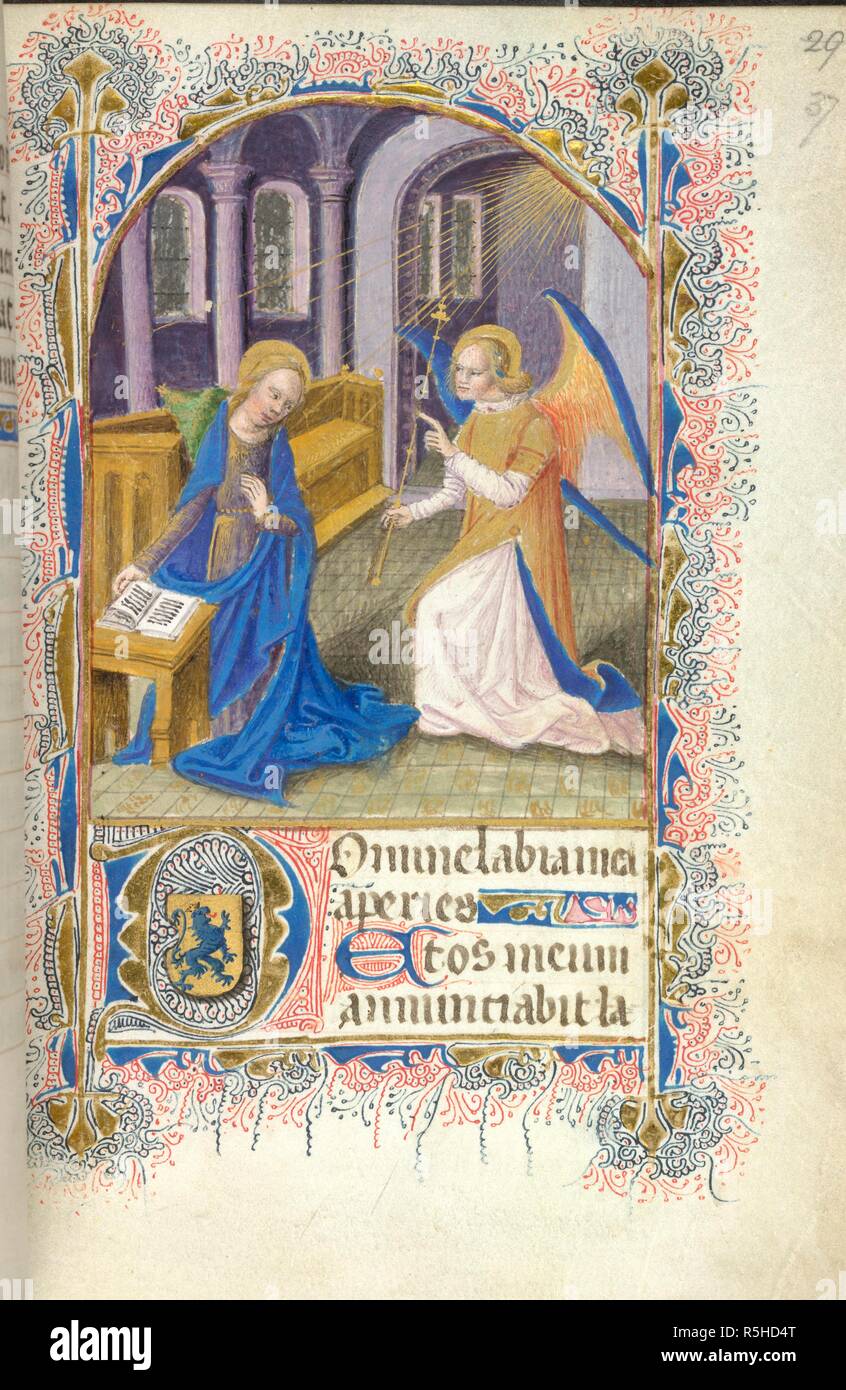 29
37
Domine labia mea
aperies
Et os meum
annunciabit la
alamy
Image ID: R5HD4T
www.alamy.com